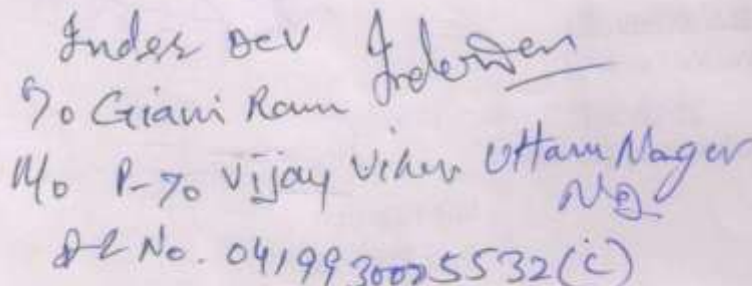 Inder Dev Inderdev
S/o Giani Ram
R/o P-70 Vijay Vihar Uttam Nagar
ND
DL No. 0419930025532(C)